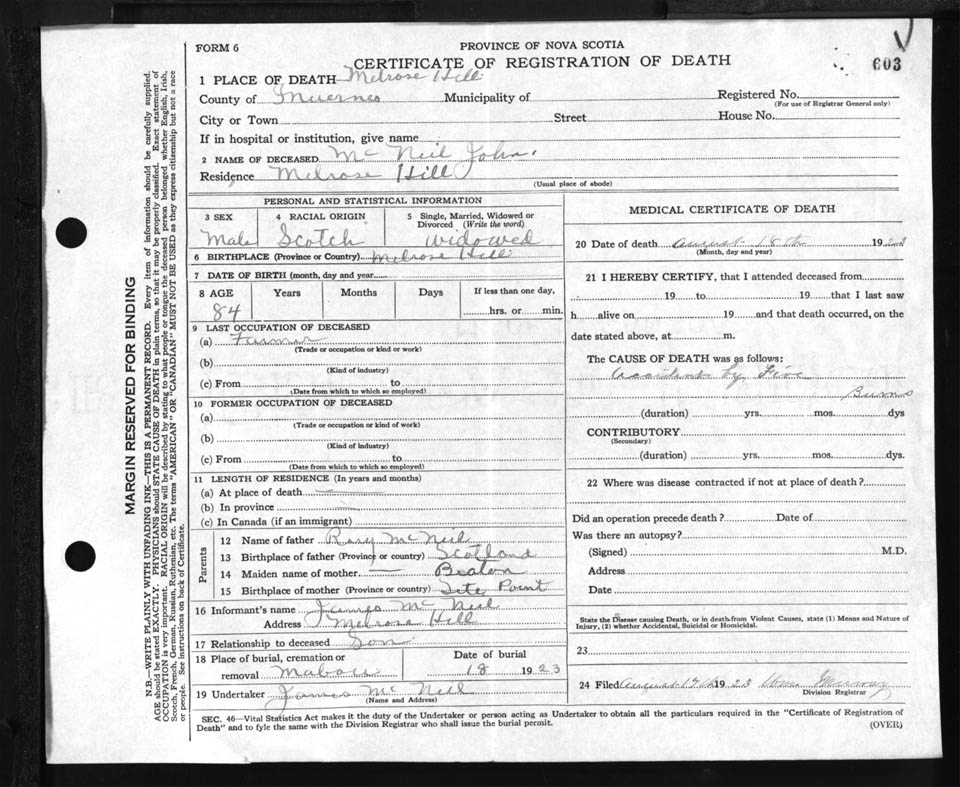 FORM 6
PROVINCE OF NOVA SCOTIA
CERTIFICATE OF REGISTRATION OF DEATH
603
1 PLACE OF DEATH Melrose Hill
County of Inverness Municipality of Registered No.
(For use of Registrar General only)
City or Town Street House No.
If in hospital or institution, give name
2 NAME OF DECEASED Mc Neil John.
Residence Melrose Hill
(Usual place of abode)
PERSONAL AND STATISTICAL INFORMATION
3 SEX 4 RACIAL ORIGIN 5 Single, Married, Widowed or
Divorced (Write the word)
Male Scotch widowed
6 BIRTHPLACE (Province or Country) Melrose Hill
7 DATE OF BIRTH (month, day and year)
8 AGE Years Months Days If less than one day,
84 hrs. or min.
9 LAST OCCUPATION OF DECEASED
(a) Farmer
(Trade or occupation or kind or work)
(b)
(Kind of industry)
(c) From to
(Date from which to which so employed)
10 FORMER OCCUPATION OF DECEASED
(a)
(Trade or occupation or kind of work)
(b)
(Kind of industry)
(c) From to
(Date from which to which so employed)
11 LENGTH OF RESIDENCE (In years and months)
(a) At place of death
(b) In province
(c) In Canada (if an immigrant)
Parents
12 Name of father Rory McNeil
13 Birthplace of father (Province or country) Scotland
14 Maiden name of mother — Beaton
15 Birthplace of mother (Province or country) Point
16 Informant's name James McNeil
Address Melrose Hill
17 Relationship to deceased Son
18 Place of burial, cremation or Date of burial
removal Mabou 18 1923
19 Undertaker James McNeil
(Name and Address)
MEDICAL CERTIFICATE OF DEATH
20 Date of death August 18th 1923
(Month, day and year)
21 I HEREBY CERTIFY, that I attended deceased from
19 to 19 that I last saw
h alive on 19 and that death occurred, on the
date stated above, at m.
The CAUSE OF DEATH was as follows:
Accident by Fire
Burns
(duration) yrs. mos. dys
CONTRIBUTORY
(Secondary)
(duration) yrs. mos. dys.
22 Where was disease contracted if not at place of death?
Did an operation precede death? Date of
Was there an autopsy?
(Signed) M.D.
Address
Date
State the Disease causing Death, or in death from Violent Causes, state (1) Means and Nature of
Injury, (2) whether Accidental, Suicidal or Homicidal.
23
24 Filed August 19th 1923 Murray
Division Registrar
SEC. 46—Vital Statistics Act makes it the duty of the Undertaker or person acting as Undertaker to obtain all the particulars required in the "Certificate of Registration of
Death" and to fyle the same with the Division Registrar who shall issue the burial permit.
(OVER)
MARGIN RESERVED FOR BINDING
N.B.—WRITE PLAINLY WITH UNFADING INK—THIS IS A PERMANENT RECORD. Every item of information should be carefully supplied.
AGE should be stated EXACTLY. PHYSICIANS should STATE CAUSE OF DEATH in plain terms, so that it may be properly classified. Exact statement of
OCCUPATION is very important. RACIAL ORIGIN will be described by stating to what people or tongue the deceased person belonged whether English, Irish,
Scotch, French, German, Russian, Ruthenian, etc. The terms "AMERICAN" OR "CANADIAN" MUST NOT BE USED as they express citizenship but not a race
or people. See instructions on back of Certificate.